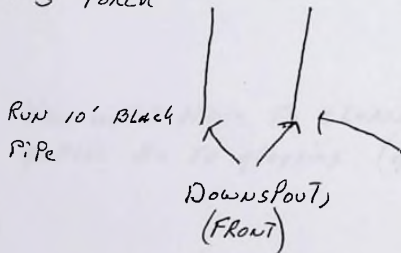 RUN 10' BLACK
PIPE
DOWNSPOUTS
(FRONT)